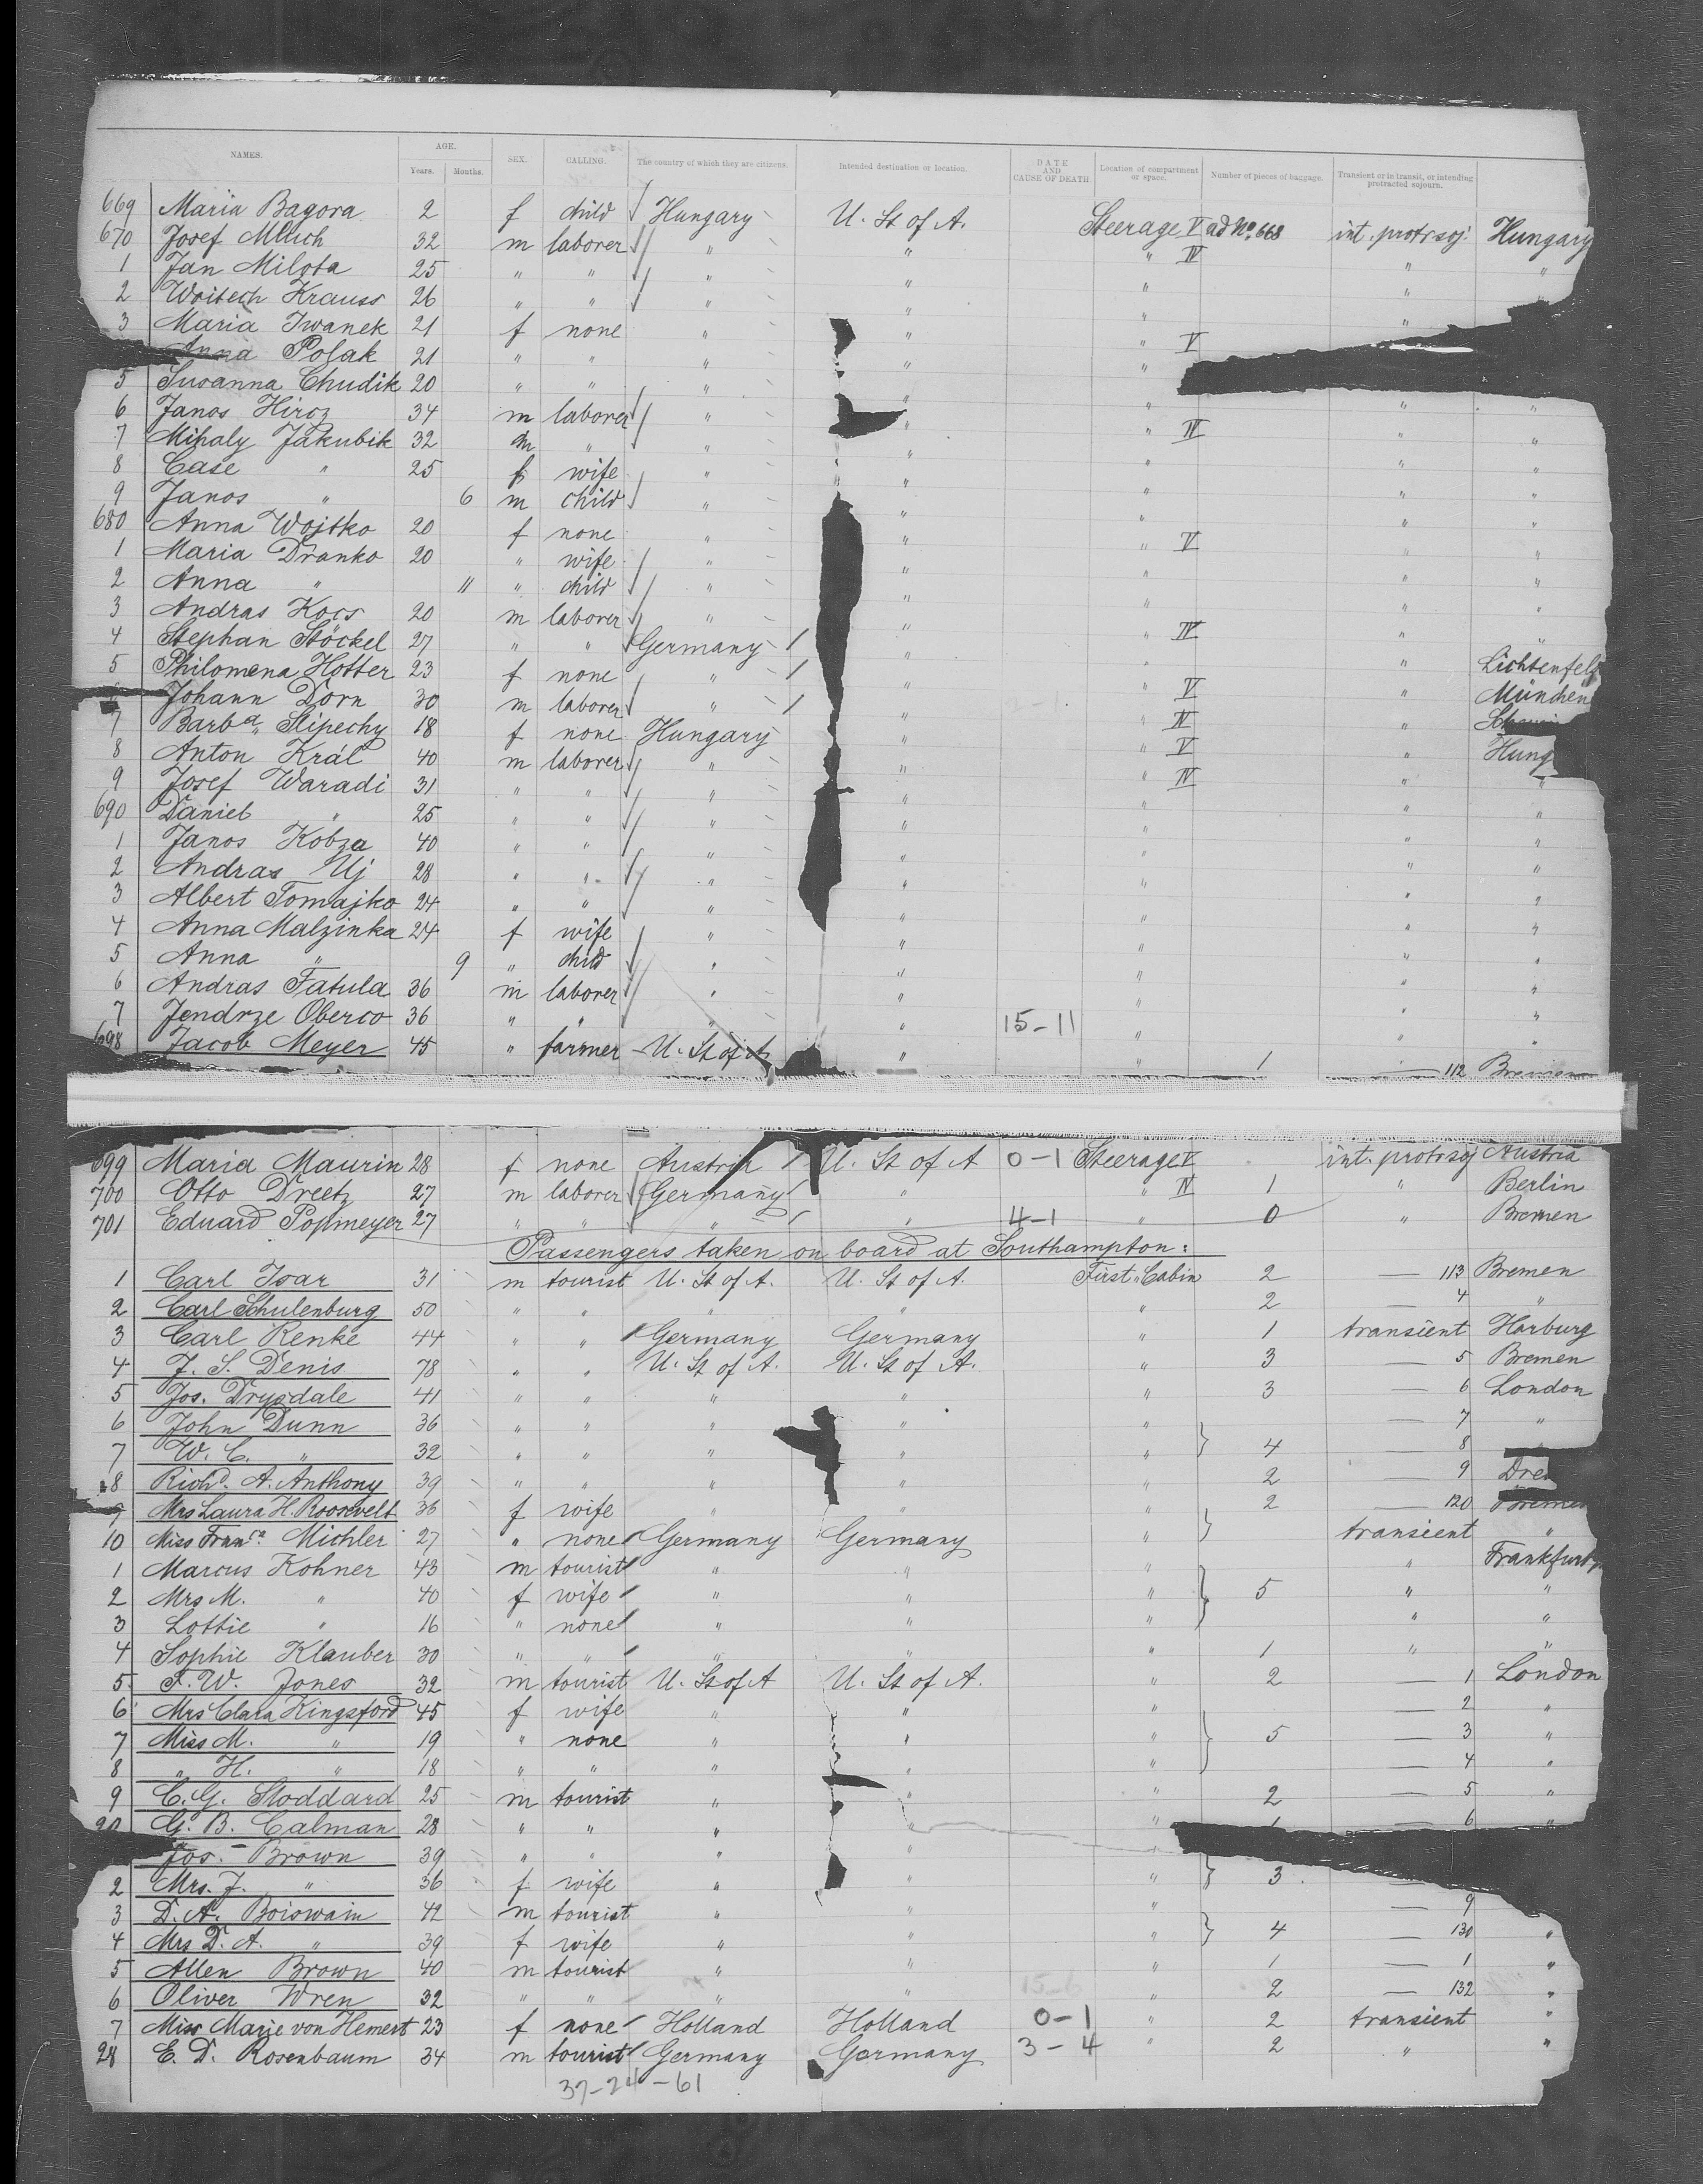 NAMES. AGE. Years. Months. SEX. CALLING. The country of which they are citizens. Intended destination or location. DATE AND CAUSE OF DEATH. Location of compartment or space. Number of pieces of baggage. Transient or in transit, or intending protracted sojourn.
669 Maria Bagora 2 f child Hungary U. St of A. Steerage V ad No. 668 int. protr soj. Hungary
670 Josef Mlich 32 m laborer " " " IV " "
1 Jan Milota 25 " " " " " " "
2 Woitech Krauss 26 " " " " " "
3 Maria Iwanek 21 f none " " " V
Anna Polak 21 " " " " "
5 Susanna Chudik 20 " " " " " " "
6 Janos Hiroz 34 m laborer " " " IV " "
7 Mihaly Jakubik 32 m " " " " " "
8 Case " 25 f wife " " " " "
9 Janos " 6 m child " " " " "
680 Anna Wojtko 20 f none " " " V " "
1 Maria Dranko 20 " wife " " " " "
2 Anna " 11 " child " " " " "
3 Andras Kocs 20 m laborer " " " IV " "
4 Stephan Stöckel 27 " " Germany " " " Lichtenfels
5 Philomena Hotter 23 f none " " " V " München
Johann Dorn 30 m laborer " " " IV "
7 Barba. Slipechy 18 f none Hungary " " V " Hung
8 Anton Král 40 m laborer " " " IV " "
9 Josef Waradi 31 " " " " " " "
690 Daniel " 25 " " " " " " "
1 Janos Kobza 40 " " " " " " "
2 Andras Uj 28 " " " " " " "
3 Albert Tomajko 24 " " " " " " "
4 Anna Malzinka 24 f wife " " " " "
5 Anna " 9 " child " " " " "
6 Andras Fatula 36 m laborer " " " " "
7 Jendrze Oberco 36 " " " " 15-11 " " "
698 Jacob Meyer 45 " farmer U. St of A " " 1 — 112 Bremen
699 Maria Maurin 28 f none Austria U. St of A 0-1 Steerage V int. protr soj Austria
700 Otto Dreetz 27 m laborer Germany " " IV 1 " Berlin
701 Eduard Popmeyer 27 " " " " 4-1 " 0 " Bremen
Passengers taken on board at Southampton:
1 Carl Isar 31 m tourist U. St of A. U. St of A. First Cabin 2 — 113 Bremen
2 Carl Schulenburg 50 " " " " " 2 — 4 "
3 Carl Renke 44 " " Germany Germany " 1 transient Harburg
4 J. S. Denis 78 " " U. St of A. U. St of A. " 3 — 5 Bremen
5 Jos. Drysdale 41 " " " " " 3 — 6 London
6 John Dunn 36 " " " " " — 7 "
7 W. C. " 32 " " " " " 4 — 8
8 Richd. A. Anthony 39 " " " " " 2 — 9 Dre
9 Mrs Laura H. Roosevelt 36 f wife " " " 2 — 120 Bremen
10 Miss Franca. Michler 27 " none Germany Germany " transient "
1 Marcus Kohner 43 m tourist " " " " Frankfurt
2 Mrs M. " 40 f wife " " " 5 " "
3 Lottie " 16 " none " " " " "
4 Sophie Klauber 30 " " " " " 1 " "
5 F. W. Jones 32 m tourist U. St of A U. St of A. " 2 — 1 London
6 Mrs Clara Kingsford 45 f wife " " " — 2 "
7 Miss M. " 19 " none " " " 5 — 3 "
8 " H. " 18 " " " " " — 4 "
9 C. G. Stoddard 25 m tourist " " " 2 — 5 "
20 G. B. Calman 28 " " " " " 1 — 6 "
Jos. Brown 39 " " " " "
2 Mrs. J. " 36 f wife " " " 3
3 D. A. Boiswain 42 m tourist " " " — 9
4 Mrs D. A. " 39 f wife " " " 4 — 130 "
5 Allen Brown 40 m tourist " " " 1 — 1 "
6 Oliver Wren 32 " " " " 15-6 " 2 — 132 "
7 Miss Marie von Hemert 23 f none Holland Holland 0-1 " 2 transient "
28 E. D. Rosenbaum 34 m tourist Germany Germany 3-4 " 2 " "
37-24-61